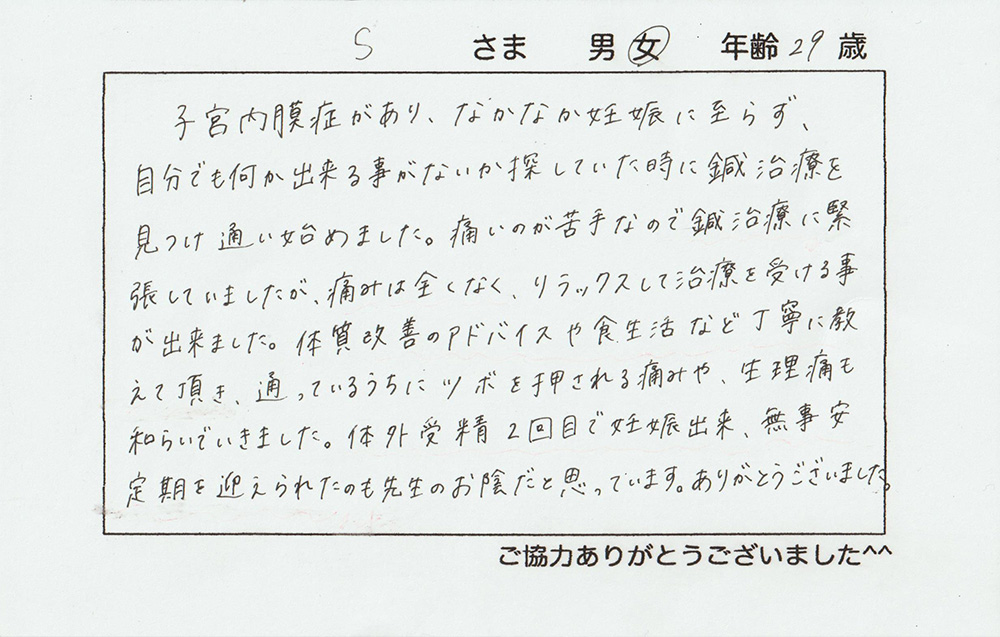 S さま 男 女 年齢 29 歳
子宮内膜症があり、なかなか妊娠に至らず、
自分でも何か出来る事がないか探していた時に鍼治療を
見つけ通い始めました。痛いのが苦手なので鍼治療に緊
張していましたが、痛みは全くなく、リラックスして治療を受ける事
が出来ました。体質改善のアドバイスや食生活など丁寧に教
えて頂き、通っているうちにツボを押される痛みや、生理痛も
和らいでいきました。体外受精2回目で妊娠出来、無事安
定期を迎えられたのも先生のお陰だと思っています。ありがとうございました。
ご協力ありがとうございました^^